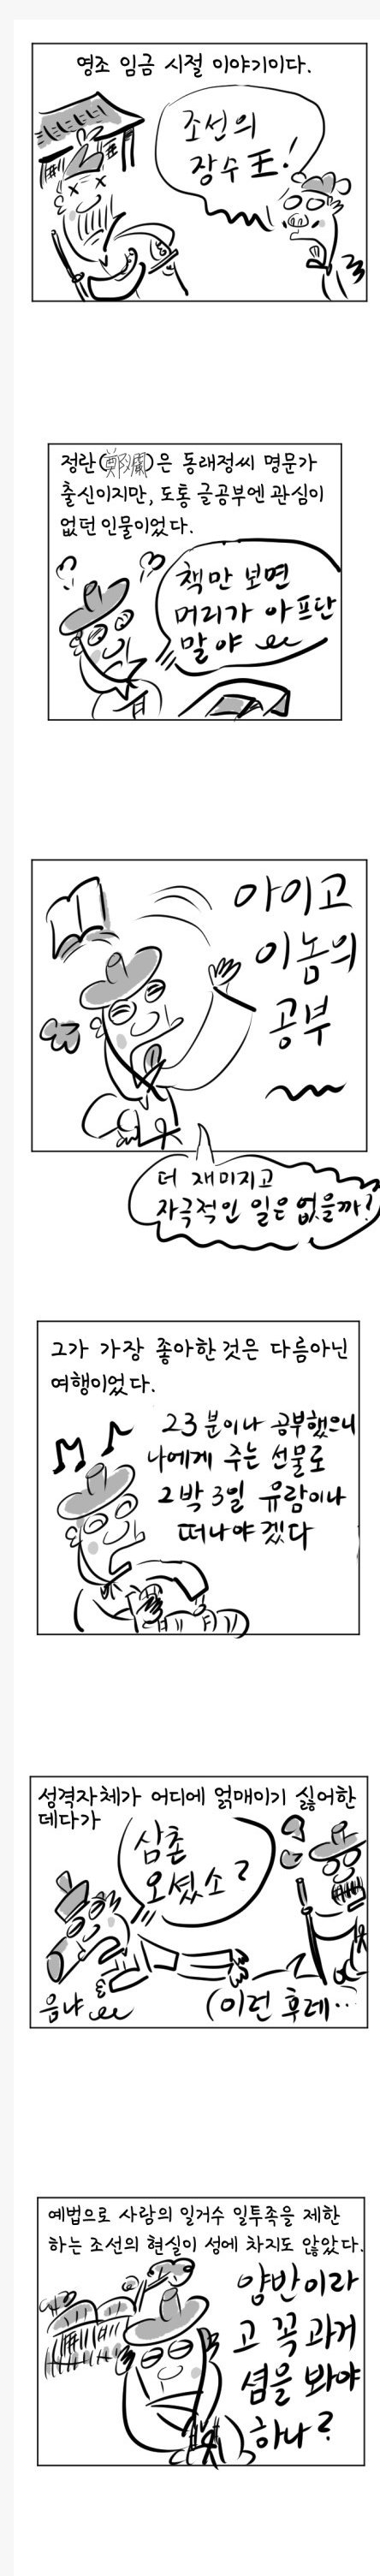 영조 임금 시절 이야기이다.
조선의
장수王!
정란(鄭瀾)은 동래정씨 명문가
출신이지만, 도통 글공부엔 관심이
없던 인물이었다.
책만 보면
머리가 아프단
말야
아이고
이놈의
공부
더 재미지고
자극적인 일은 없을까?
그가 가장 좋아한 것은 다름아닌
여행이었다.
23분이나 공부했으니
나에게 주는 선물로
2박 3일 유람이나
떠나야겠다
성격자체가 어디에 얽매이기 싫어한
데다가
삼촌
오셨소?
음냐
(이런 후레…
예법으로 사람의 일거수 일투족을 제한
하는 조선의 현실이 성에 차지도 않았다.
양반이라
고 꼭 과거
셤을 봐야
하나?